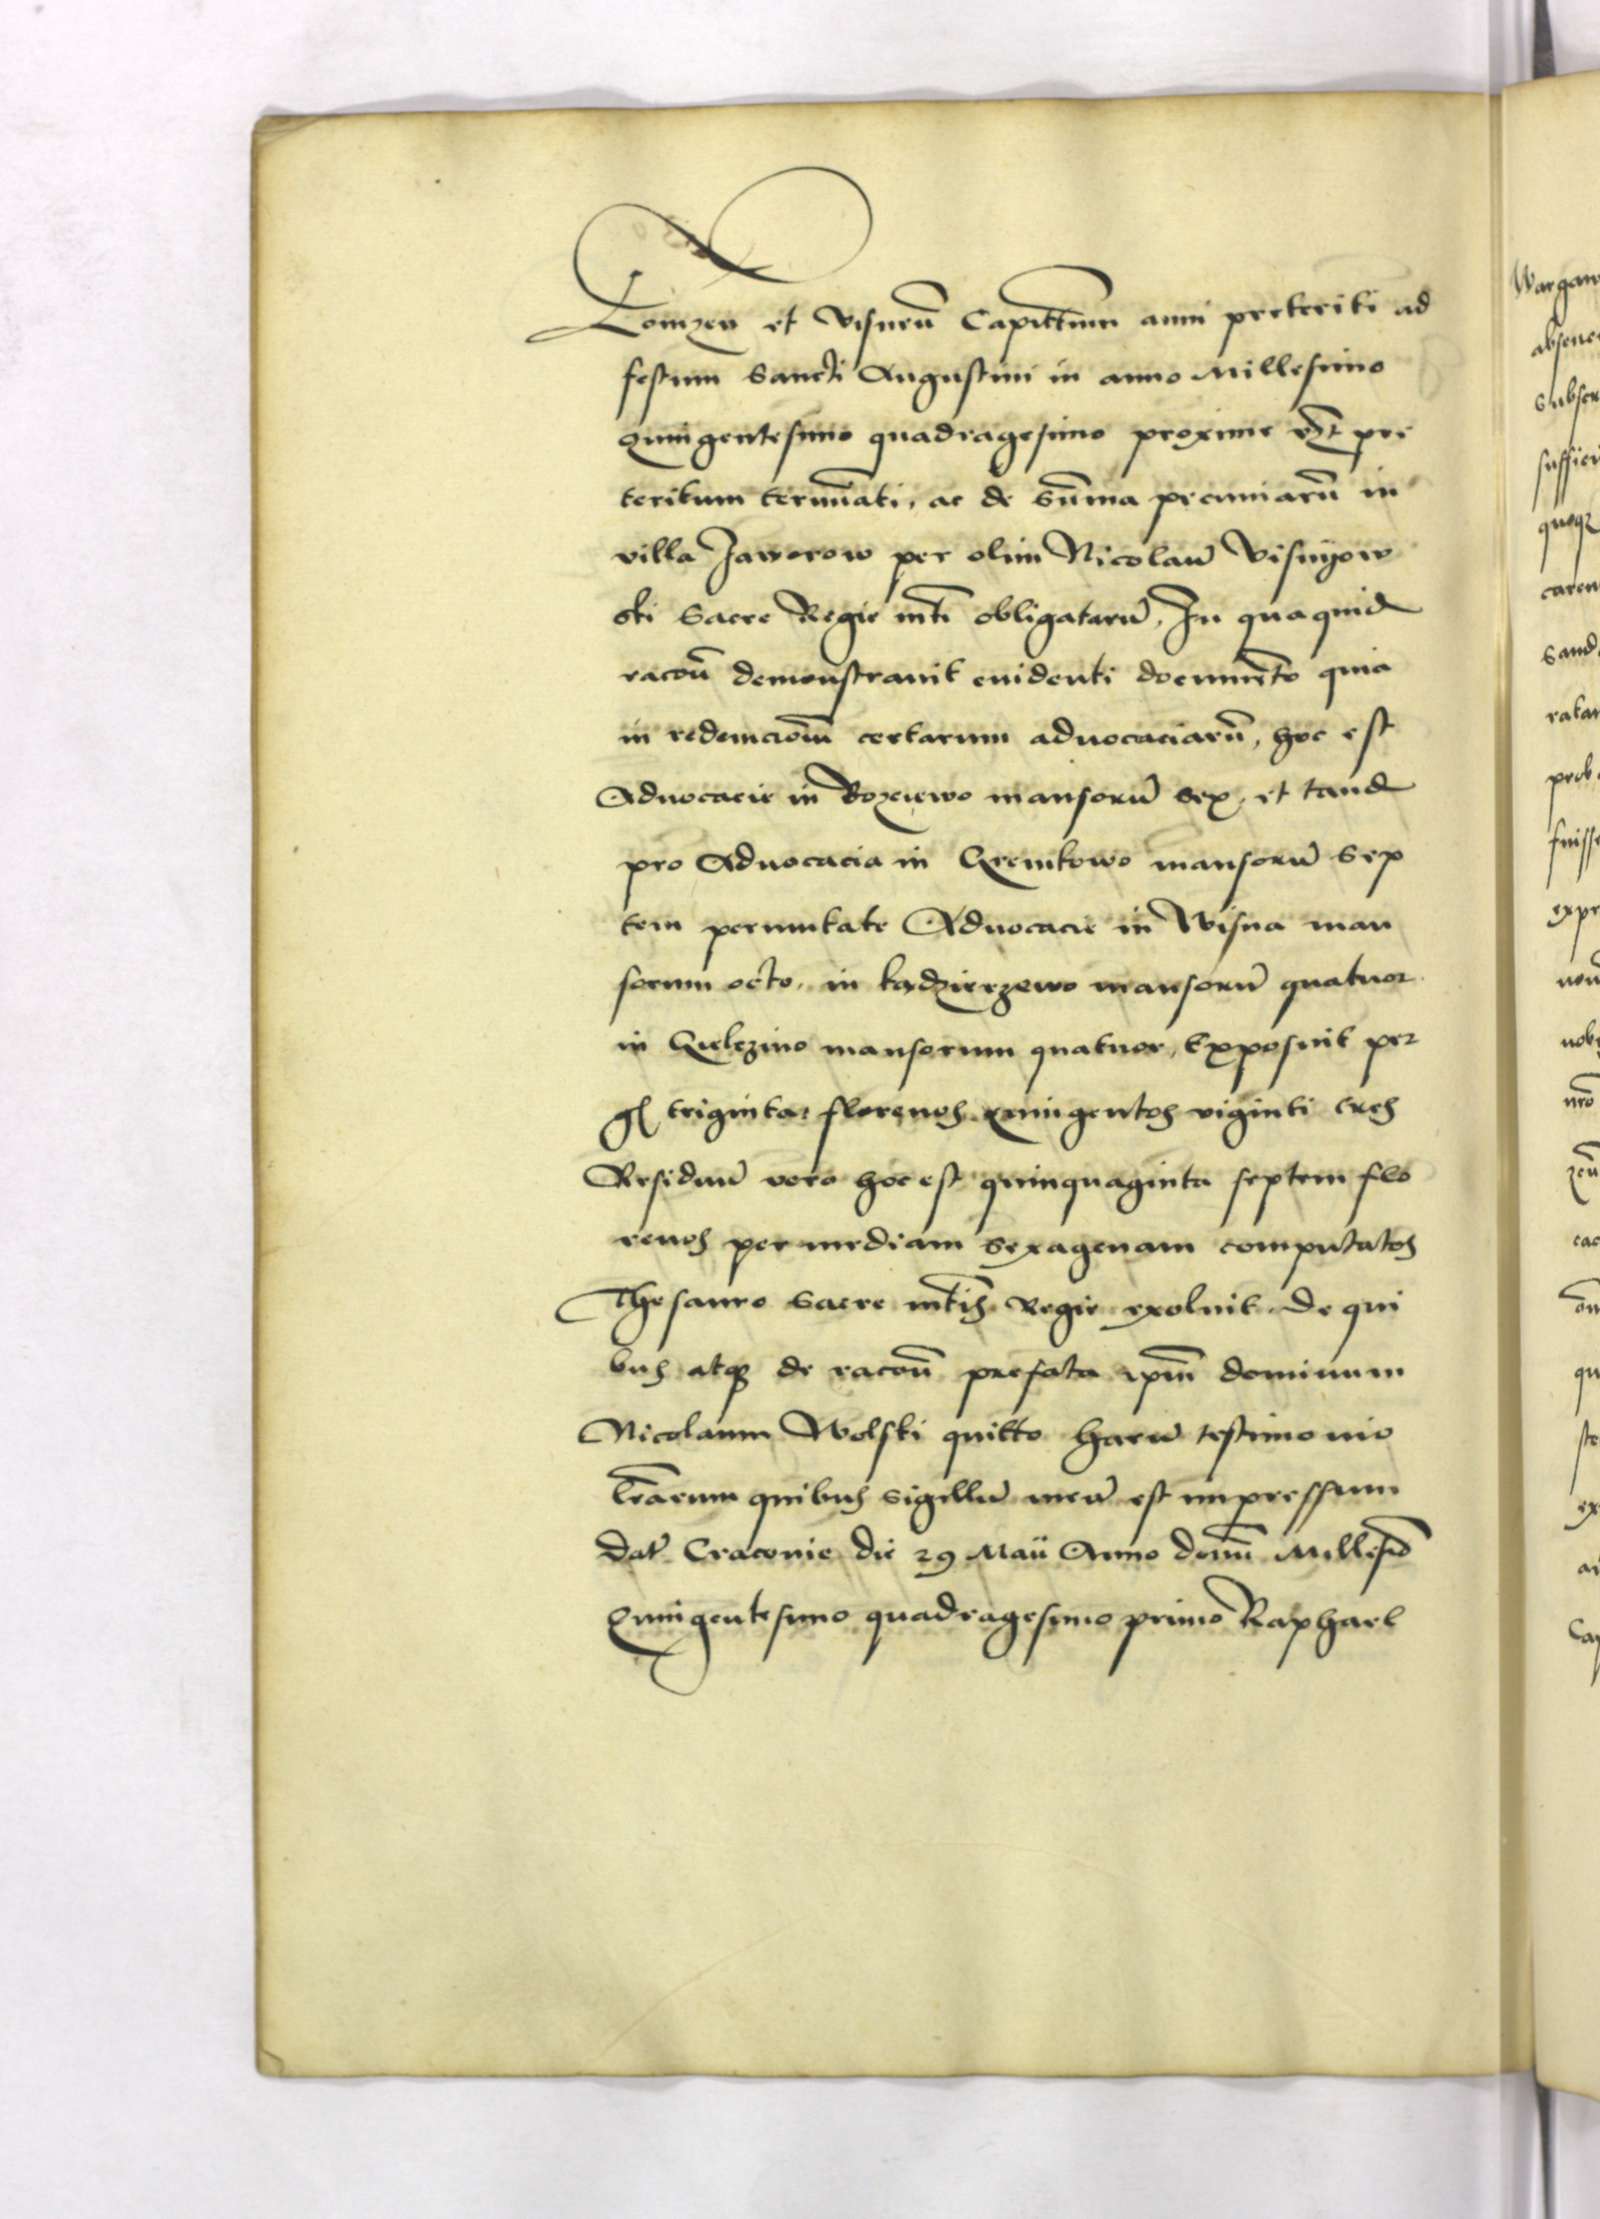 Lomzen et Visneñ Capittuum anni preteriti ad
festum Sancti Augustini in anno Millesimo
Quingentesimo quadragesimo proxime pre
teritum terminati, ac de Summa pecuniarũ in
villa Jaworow per olim Nicolaũ Visnyow
ski Sacre Regie mti obligatarũ, In qua quid
racoñ demonstravit evidenti documẽto quia
in redempcioñ certarum advocaciarũ, hoc est
Advocacie in Bozeiewo mansorũ Sex, et tand
pro Advocacia in Kremkowo mansorũ Sep
tem permutate Advocacie in Wisna man
sorum octo, in kadzierzewo mansorũ quatuor
in Kielczino mansorum quatuor, Exposuit per
gl triginta: florenos quingentos viginti tres
Residuũ vero hoc est quinquaginta septem flo
renos per mediam Sexagenam computatos
Thesauro Sacre mtis Regie exolvit. De qui
bus atq3 de racoñ prefata ipm̃ dominum
Nicolaum Wolski quitto harũ testimonio
lrãrum quibus Sigillũ meũ est impressum
Dat Cracovie die 29 Maii Anno domi Millesiõ
Quingentesimo quadragesimo primo Raphael
Wargaw
subscr
quoq3
caren
Sand
ratar
prob
fuisse
expe
nob
nrõ
qu
ste
ex
Cap